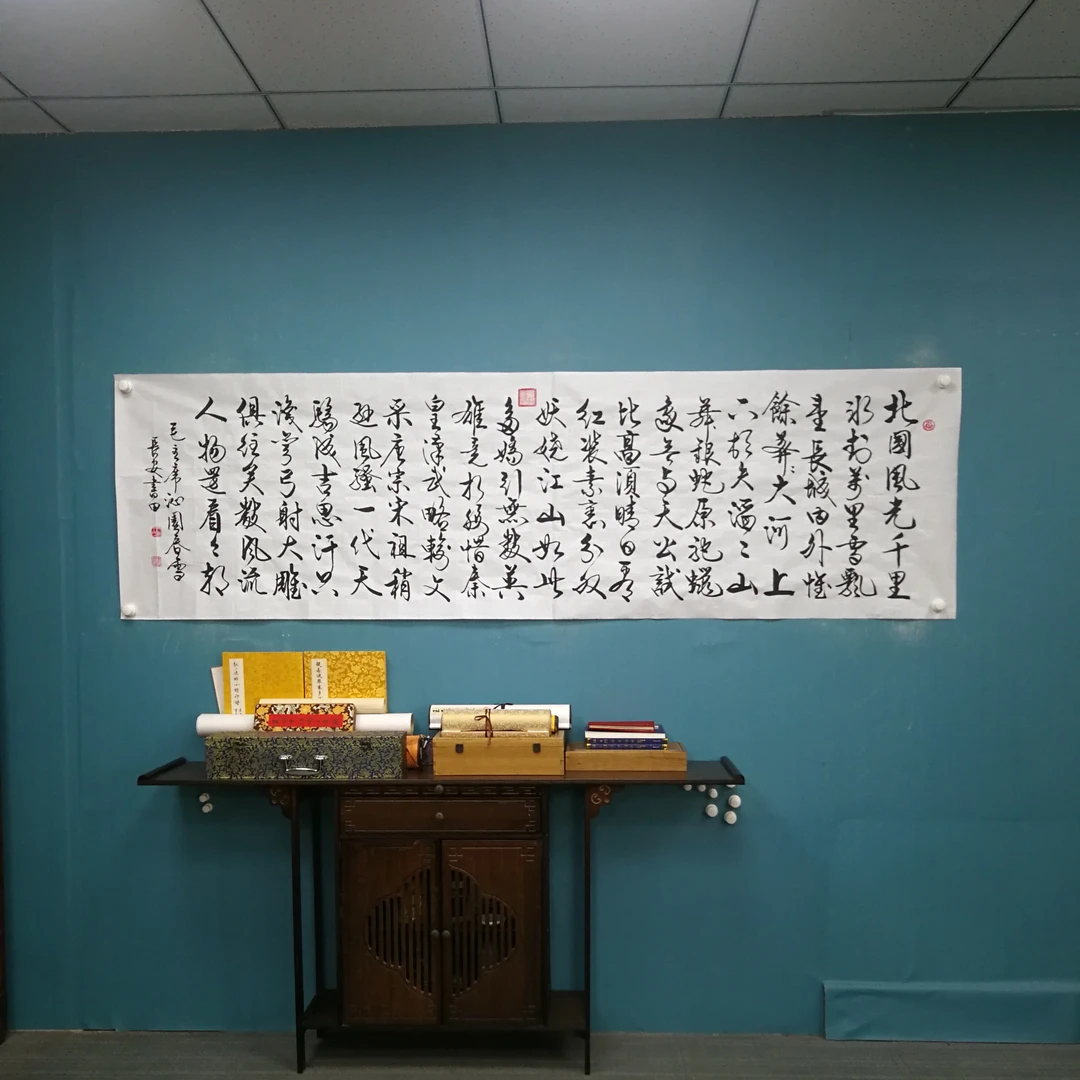 北國風光千里
冰封萬里雪飄
望長城内外惟
餘莽〻大河上
下頓失滔〻山
舞銀蛇原馳蠟
象欲与天公試
比高須晴日看
红裝素裹分外
妖嬈江山如此
多嬌引無數英
雄竞折腰惜秦
皇漢武略輸文
采唐宗宋祖稍
逊風騷一代天
驕成吉思汗只
識彎弓射大雕
俱往矣數風流
人物還看今朝
毛主席沁園春雪
長安書田